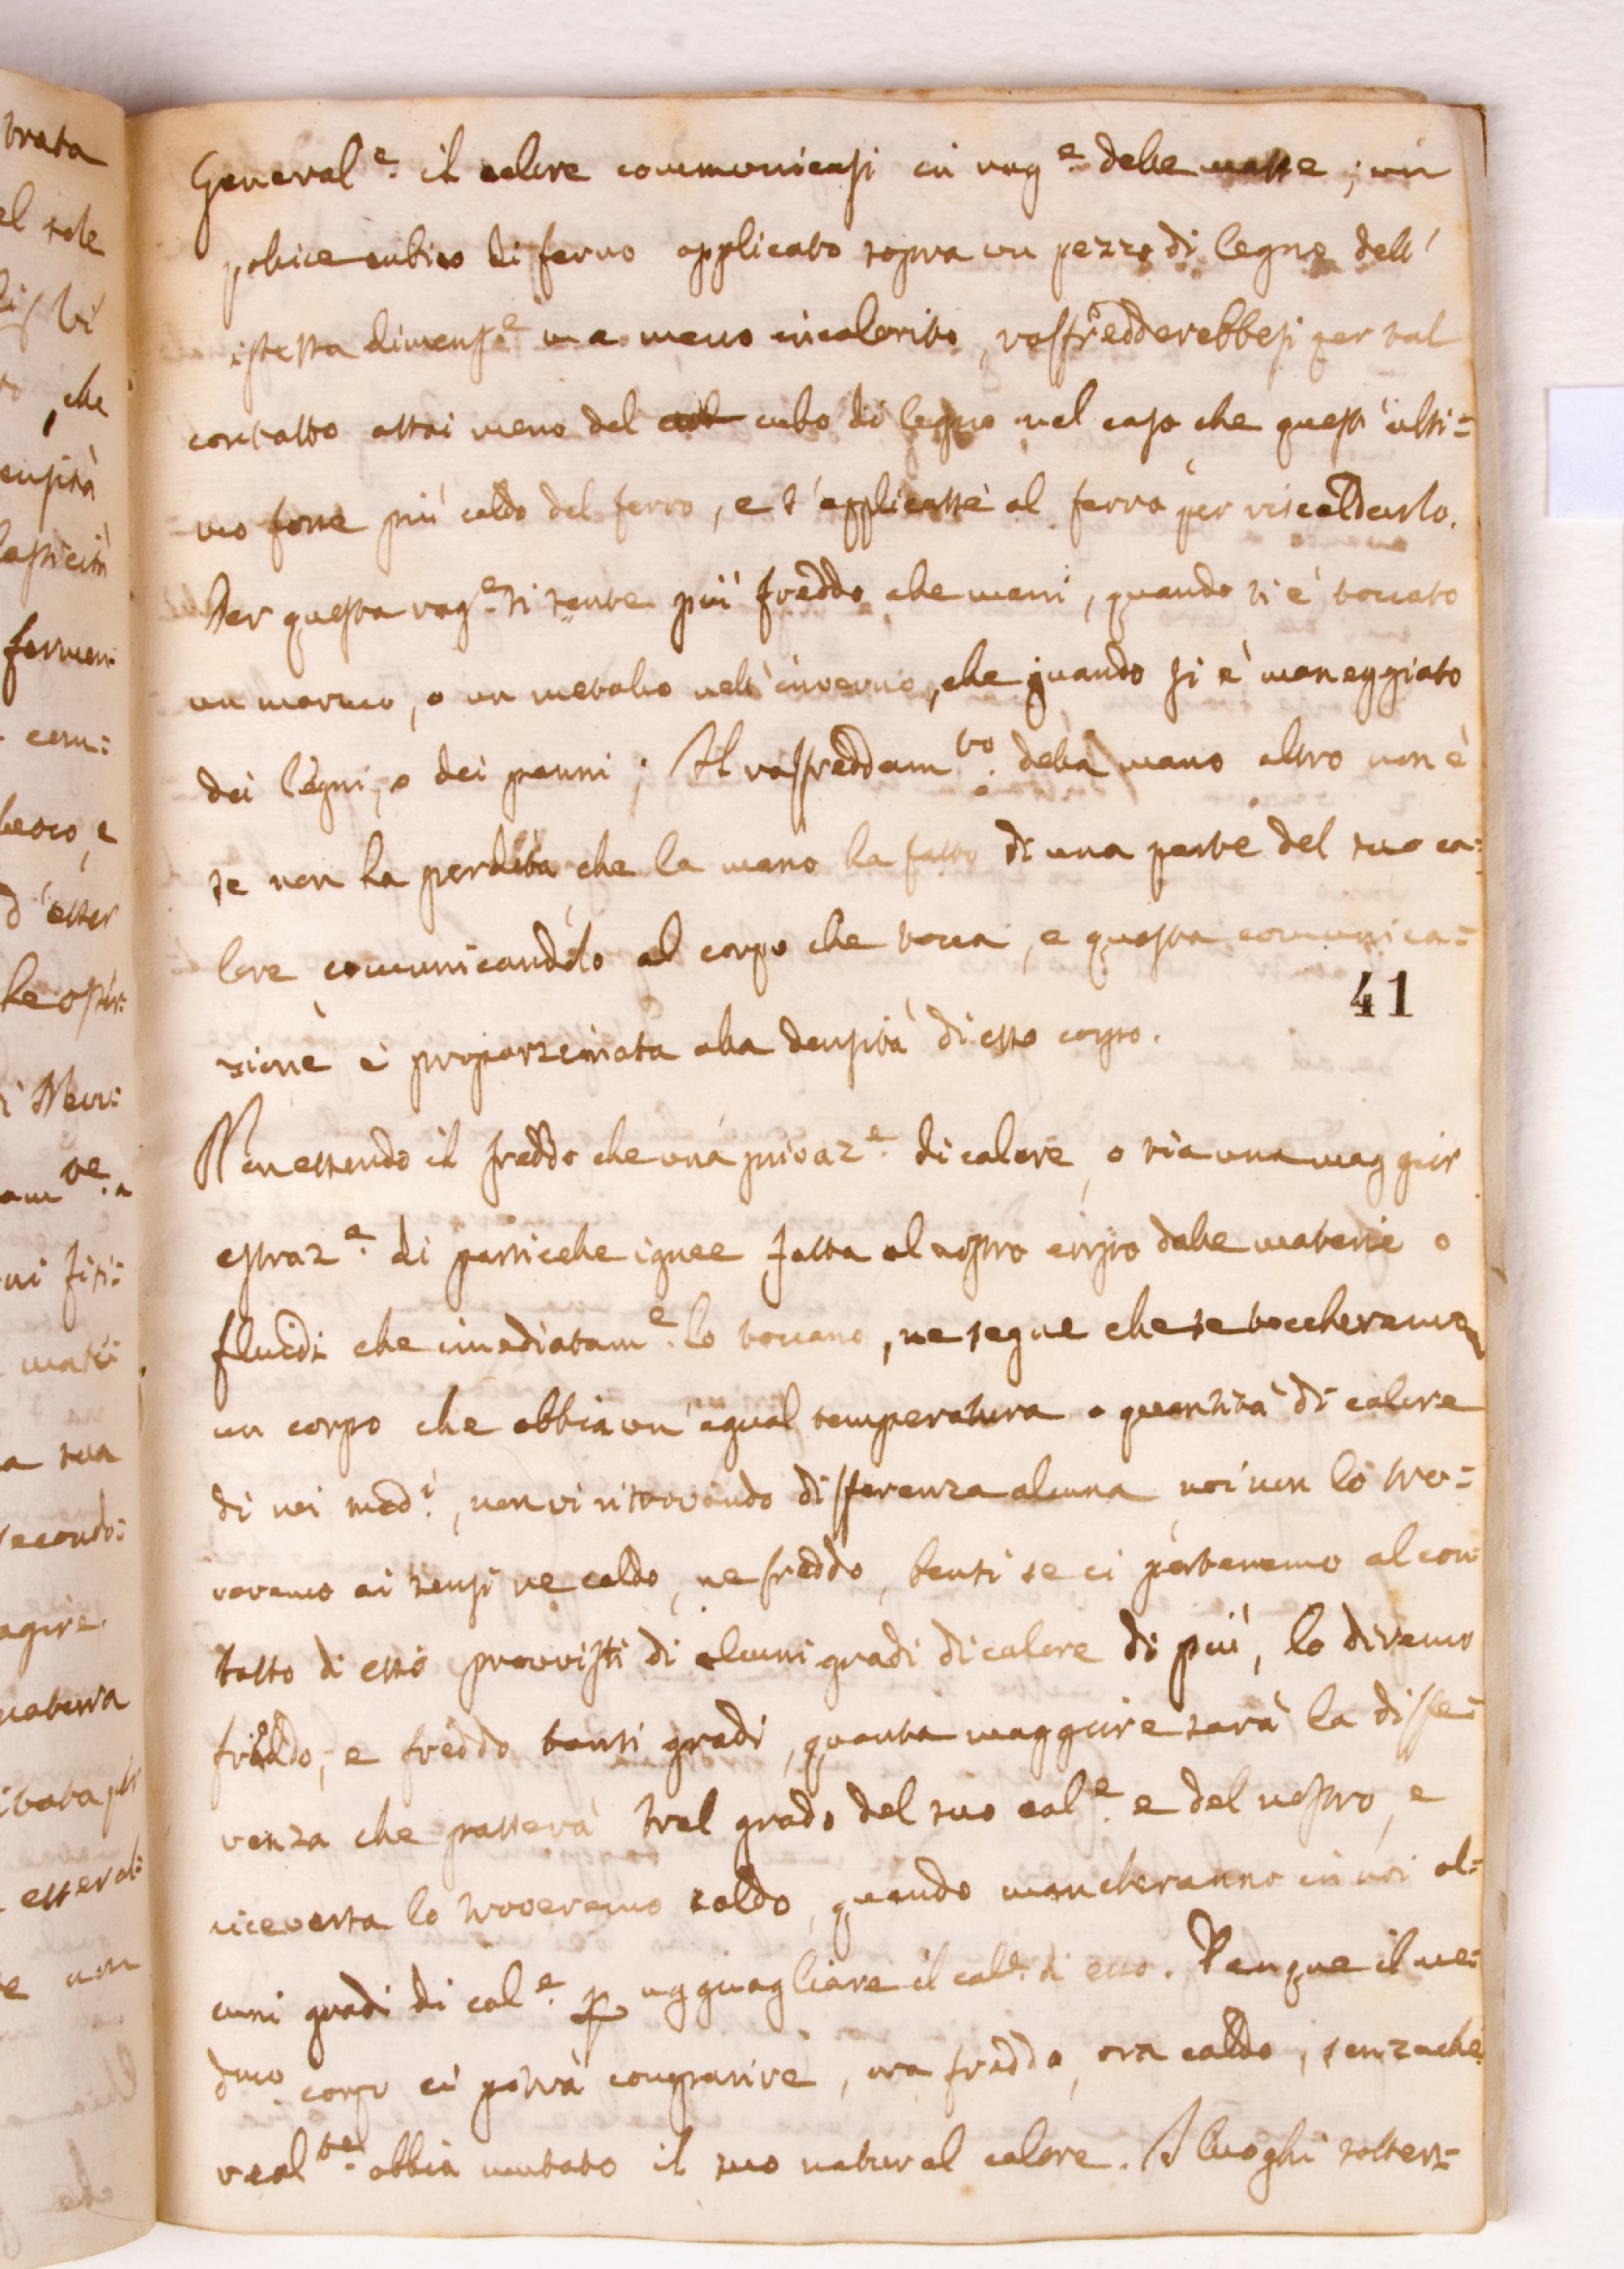 General.e il calore communicasi in rag.e delle masse; un
pollice cubico di ferro applicato sopra un pezzo di legno dell'
istessa dimens.e ma meno incalorito, raffredderebbesi per tal
contatto assai meno del cubo di legno nel caso che quest'ulti=
mo fosse più caldo del ferro, e s'applicasse al ferro per riscaldarlo.
Per questa rag.e si sente più freddo alle mani, quando si è toccato
un marmo, o un metallo nell'inverno, che quando si è maneggiato
dei legni, o dei panni; Il raffreddam.to della mano altro non è
se non la perdita che la mano ha fatto di una parte del suo ca=
lore comunicandolo al corpo che tocca, e questa comunica=
41
zione è proporzionata alla densità di esso corpo.
Non essendo il freddo che una privaz.e di calore, o sia una maggior
estraz.e di particelle ignee fatta al nostro corpo dalle materie o
fluidi che imediatam.e lo toccano, ne segue che se toccheremo
un corpo che abbia un'egual temperatura o quantità di calore
di noi med.i, non vi ritrovando differenza alcuna noi non lo tro=
veremo ai sensi ne caldo, ne freddo, bensi se ci porteremo al con=
tatto di esso provvisti di alcuni gradi di calore di più, lo diremo
freddo, e freddo tanti gradi, quanta maggiore sarà la diffe=
renza che passerà tral grado del suo cal.e e del nostro, e
viceversa lo troveremo caldo, quando mancheranno in noi al=
cuni gradi di cal.e p uguagliare il cal.e di esso. Dunque il me=
dmo corpo ci potrà comparire, ora freddo, ora caldo, senzache
real.te abbia mutato il suo natural calore. I luoghi sotter=
brata
el sole
, che
ensità
lasticità
fermen:
com:
d'esser
a sua
secondo:
agire.